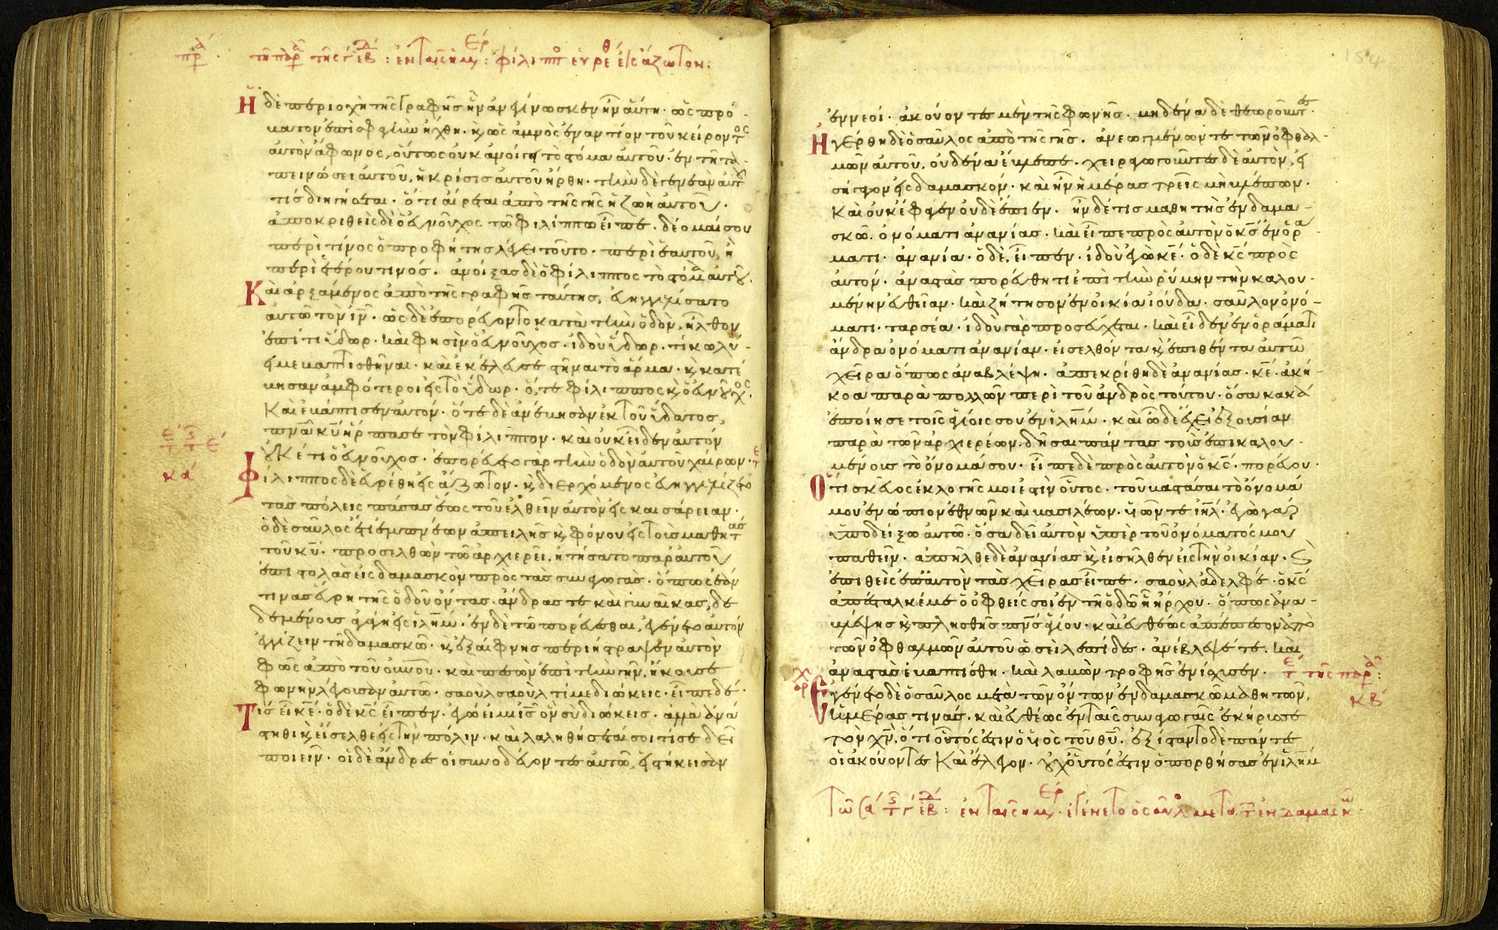 Ἡ δὲ περιοχὴ τῆς γραφῆς ἣν ἀνεγίνωσκεν ἦν αὕτη· ὡς πρό-
βατον ἐπὶ σφαγὴν ἤχθη· κ ὡς ἀμνὸς ἐναντίον τοῦ κείροντος
αὐτὸν ἄφωνος, οὕτως οὐκ ἀνοίγει τὸ στόμα αὐτοῦ· ἐν τῇ τα-
πεινώσει αὐτοῦ, ἡ κρίσις αὐτοῦ ἤρθη· τὴν δὲ γενεὰν αὐτοῦ
τίς διηγήσεται· ὅτι αἴρεται ἀπὸ τῆς γῆς ἡ ζωὴ αὐτοῦ·
ἀποκριθεὶς δὲ ὁ εὐνοῦχος τῶ φιλίππω εἶπε· δέομαί σου
περὶ τίνος ὁ προφήτης λέγει τοῦτο· περὶ ἑαυτοῦ, ἢ
περὶ ἑτέρου τινός· ἀνοίξας δὲ ὁ φίλιππος τὸ στόμα αὐτοῦ·
Καὶ ἀρξάμενος ἀπὸ τῆς γραφῆς ταύτης, εὐηγγελίσατο
αὐτῶ τὸν ιν· ὡς δὲ ἐπορεύοντο κατὰ τὴν ὁδὸν, ἦλθον
ἐπί τι ὕδωρ· καί φησιν ὁ εὐνοῦχος· ἰδοὺ ὕδωρ· τί κωλύ-
ει με βαπτισθῆναι· καὶ ἐκέλευσε στῆναι τὸ ἅρμα· κ κατέ
βησαν ἀμφότεροι εἰς τὸ ὕδωρ· ὅ, τε φίλιππος κ ὁ εὐνοῦχος·
Καὶ ἐβάπτισεν αὐτόν· ὅτε δὲ ἀνέβησαν ἐκ τοῦ ὕδατος,
πνα κυ ἥρπασε τὸν φίλιππον· καὶ οὐκ εἶδεν αὐτὸν
οὐκέτι ὁ εὐνοῦχος· ἐπορεύετο γὰρ τὴν ὁδὸν αὐτοῦ χαίρων·
Φίλιππος δὲ εὑρέθη εἰς ἄζωτον· κ διερχόμενος εὐηγγελίζετο
τὰς πόλεις πάσας ἕως τοῦ ἐλθεῖν αὐτὸν εἰς καισάρειαν·
ὁ δὲ σαῦλος ἔτι ἐμπνέων ἀπειλῆς κ φόνου εἰς τοὺς μαθητὰς
τοῦ κυ· προσελθὼν τῶ ἀρχιερεῖ, ἠτήσατο παρ' αὐτοῦ
ἐπιστολὰς εἰς δαμασκὸν πρὸς τὰς συναγωγάς· ὅπως ἐάν
τινας εὕρη τῆς ὁδοῦ ὄντας· ἄνδρας τε καὶ γυναῖκας, δε
δεμένους ἀγάγη εἰς ιλημ· ἐν δὲ τῶ πορεύεσθαι, ἐγένετο αὐτὸν
ἐγγίζειν τῆ δαμασκῶ· κ ἐξαίφνης περιήστραψεν αὐτὸν
φῶς ἀπὸ τοῦ οὐνου· καὶ πεσὼν ἐπὶ τὴν γῆν, ἤκουσε
φωνὴν λέγουσαν αὐτῶ· σαοὺλ σαοὺλ τί με διώκεις· εἶπε δέ·
Τίς εἶ κε· ὁ δὲ κς εἶπεν· ἐγώ εἰμι ις ὃν σὺ διώκεις· ἀλλὰ ἀνά
στηθι κ εἴσελθε εἰς τὴν πόλιν· καὶ λαληθήσεταί σοι τί σε δεῖ
ποιεῖν· οἱ δὲ ἄνδρες οἱ συνοδεύοντες αὐτῶ, εἱστήκεισαν
ἐννεοί· ἀκούοντες μὲν τῆς φωνῆς· μηδένα δὲ θεωροῦντες·
Ἠγέρθη δὲ ὁ σαῦλος ἀπὸ τῆς γῆς· ἀνεωγμένων τε τῶν ὀφθαλ-
μῶν αὐτοῦ, οὐδένα ἔβλεπε· χειραγωγοῦντες δὲ αὐτὸν, εἰ
σήγαγον εἰς δαμασκόν· καὶ ἦν ἡμέρας τρεῖς μὴ βλέπων·
Καὶ οὐκ ἔφαγεν οὐδὲ ἔπιεν· ἦν δέ τις μαθητὴς ἐν δαμα-
σκῶ· ὀνόματι ἀνανίας· καὶ εἶπε πρὸς αὐτὸν ὁ κς ἐν ὁρά-
ματι· ἀνανία· ὁ δὲ, εἶπεν· ἰδοὺ ἐγὼ κε· ὁ δὲ κς πρὸς
αὐτόν· ἀναστὰς πορεύθητι ἐπὶ τὴν ῥύμην τὴν καλου-
μένην εὐθεῖαν· καὶ ζήτησον ἐν οἰκία ἰούδα· σαῦλον ὀνό-
ματι· ταρσέα· ἰδοὺ γὰρ προσεύχεται· καὶ εἶδεν ἐν ὁράματι
ἄνδρα ὀνόματι ἀνανίαν· εἰσελθόντα κ ἐπιθέντα αὐτῶ
χεῖρα ὅπως ἀναβλέψη· ἀπεκρίθη δὲ ἀνανίας· κε· ἀκή-
κοα παρὰ πολλῶν περὶ τοῦ ἀνδρὸς τούτου· ὅσα κακὰ
ἐποίησε τοῖς ἁγίοις σου ἐν ιλημ· καὶ ὧδε ἔχει ἐξουσίαν
παρὰ τῶν ἀρχιερέων· δῆσαι πάντας τοὺς ἐπικαλου-
μένους τὸ ὄνομά σου· εἶπε δὲ πρὸς αὐτὸν ὁ κς· πορεύου·
Ὅτι σκεῦος ἐκλογῆς μοι ἐστὶν οὗτος· τοῦ βαστάσαι τὸ ὄνομά
μου ἐνώπιον ἐθνῶν καὶ βασιλέων· υἱῶν τε ιηλ· ἐγὼ γὰρ
ὑποδείξω αὐτῶ· ὅσα δεῖ αὐτὸν ὑπὲρ τοῦ ὀνόματός μου
παθεῖν· ἀπῆλθε δὲ ἀνανίας κ εἰσῆλθεν εἰς τὴν οἰκίαν· κ
ἐπιθεὶς ἐπ' αὐτὸν τὰς χεῖρας εἶπε· σαοὺλ ἀδελφέ· ὁ κς
ἀπέσταλκέ με ὁ ὀφθείς σοι ἐν τῆ ὁδῶ ἧ ἤρχου· ὅπως ἀνα-
βλέψης κ πλησθῆς πνς ἁγίου· καὶ εὐθέως ἀπέπεσον ἀπὸ
τῶν ὀφθαλμῶν αὐτοῦ ὡσεὶ λεπίδες· ἀνέβλεψέ τε· καὶ
ἀναστὰς ἐβαπτίσθη· καὶ λαβὼν τροφῆς ἐνίσχυσεν·
Ἐγένετο δὲ ὁ σαῦλος μετὰ τῶν ὄντων ἐν δαμασκῶ μαθητῶν,
ἡμέρας τινάς· καὶ εὐθέως ἐν ταῖς συναγωγαῖς ἐκήρυσσε
τὸν χν, ὅτι οὗτός ἐστιν ὁ υἱὸς τοῦ θυ· ἐξίσταντο δὲ πάντες
οἱ ἀκούοντες καὶ ἔλεγον· οὐχ οὗτός ἐστιν ὁ πορθήσας ἐν ιλημ